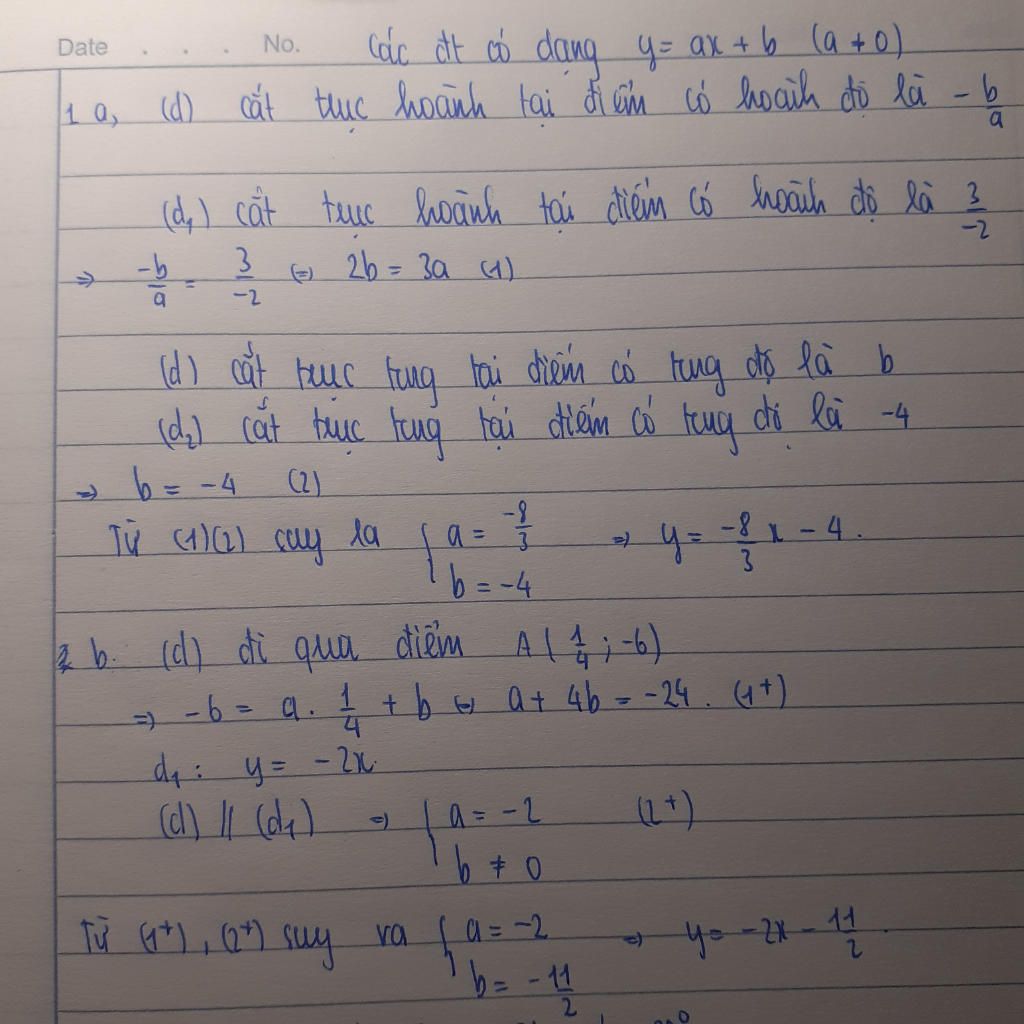 Date . . . . No. Các đt có dạng y = ax + b (a ≠ 0)
1 a, (d) cắt trục hoành tại điểm có hoành độ là -b/a
(d₁) cắt trục hoành tại điểm có hoành độ là 3/-2
⇒ -b/a = 3/-2 ⇔ 2b = 3a (1)
(d) cắt trục tung tại điểm có tung độ là b
(d₂) cắt trục tung tại điểm có tung độ là -4
⇒ b = -4 (2)
Từ (1)(2) suy ra { a = -8/3 ⇒ y = -8/3 x - 4.
b = -4
b. (d) đi qua điểm A (1/4 ; -6)
⇒ -6 = a. 1/4 + b ⇔ a + 4b = -24. (1+)
d₁ : y = -2x.
(d) // (d₁) ⇒ { a = -2 (2+)
b ≠ 0
Từ (1+), (2+) suy ra { a = -2 ⇒ y = -2x - 11/2.
b = -11/2